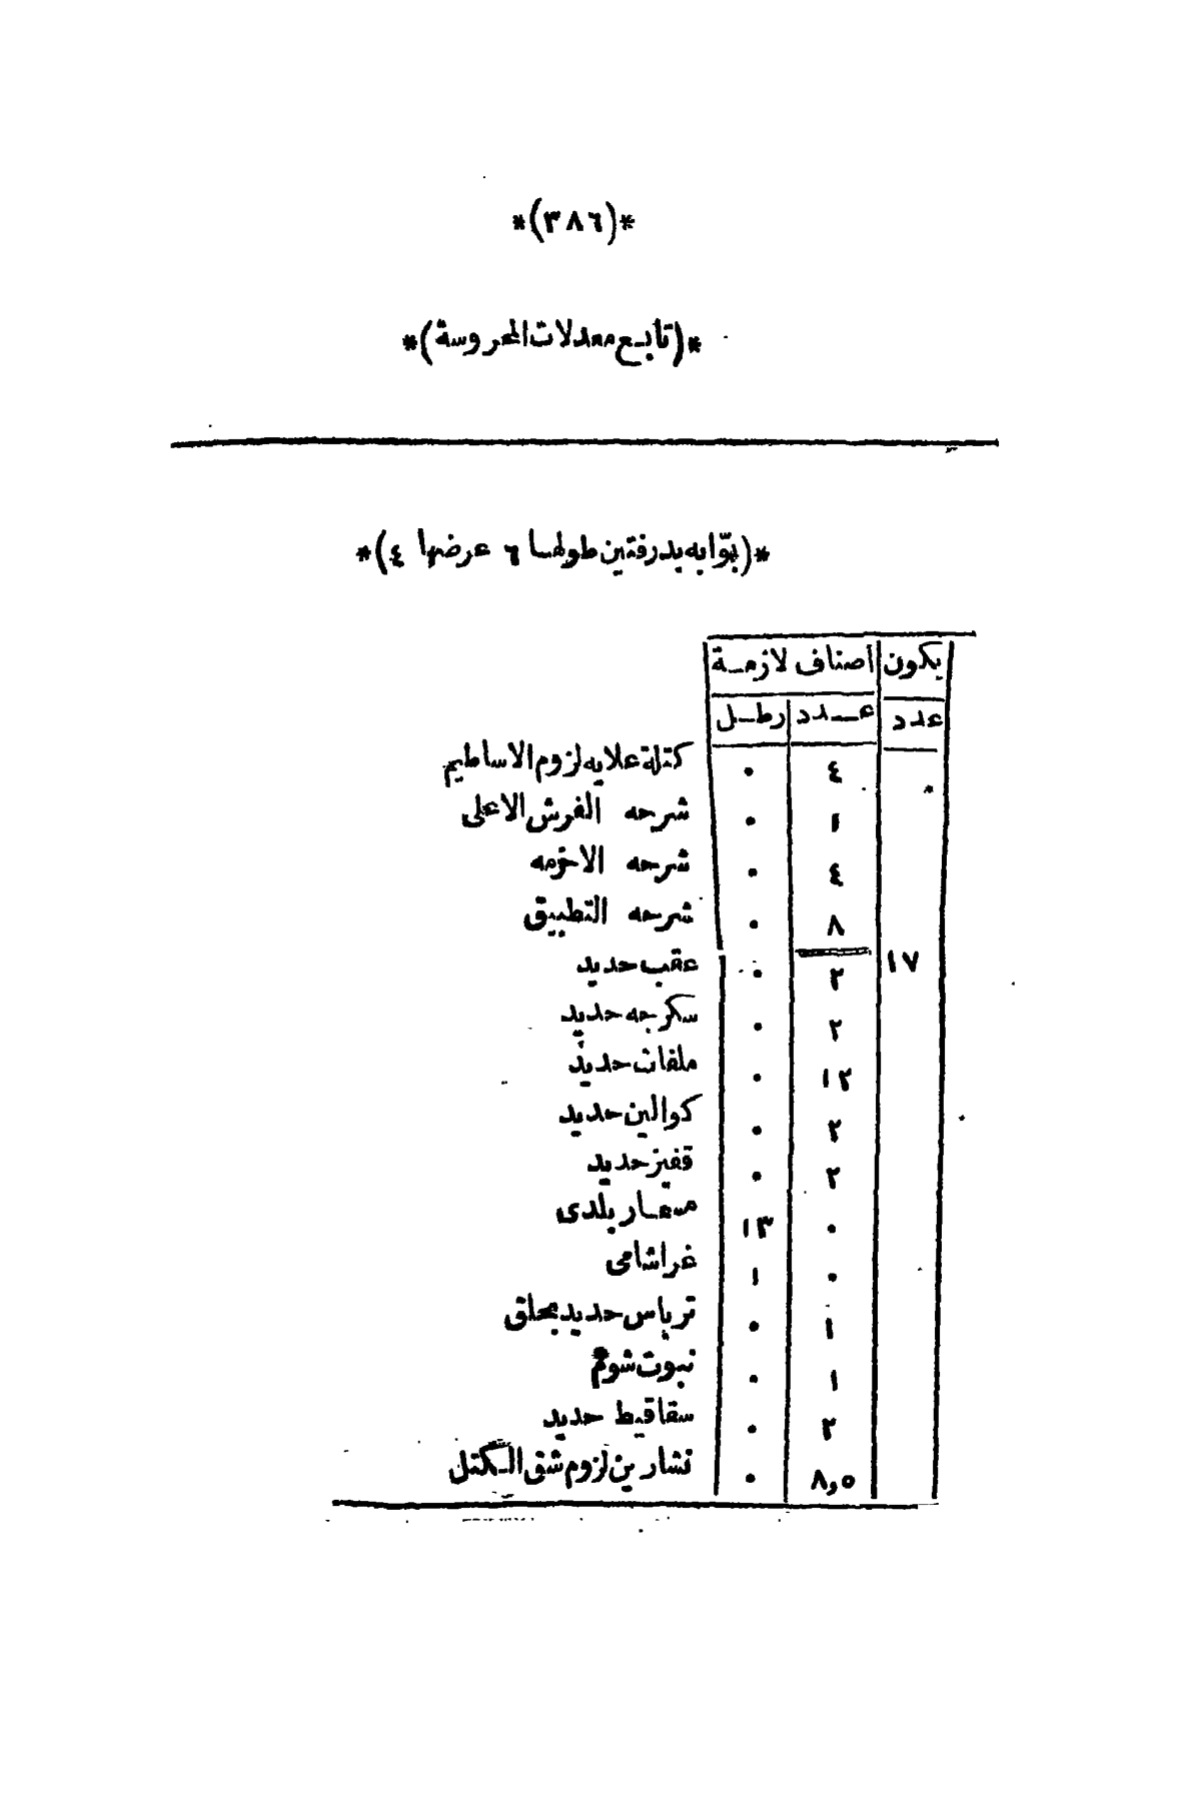 *(٣٨٦)*
*(تابع معدلات المحروسة)*
*(بوّابه بدرفتين طولها ٦ عرضها ٤)*
يكون أصناف لازمة
عدد عدد رطل
٤ ٠ كتلة علايه لزوم الاساطيم
١ ٠ شرحه الفرش الاعلى
٤ ٠ شرحه الاخزمه
٨ ٠ شرحه التطبيق
١٧ ٢ ٠ عقب حديد
٢ ٠ سكرجه حديد
١٢ ٠ ملفات حديد
٢ ٠ كوالين حديد
٢ ٠ قفيز حديد
٠ ١٣ مسمار بلدى
٠ ١ غرا شامى
١ ٠ ترباس حديد بحلق
١ ٠ نبوت شوم
٢ ٠ سقاقيط حديد
٨,٥ ٠ نشارين لزوم شق الكتل